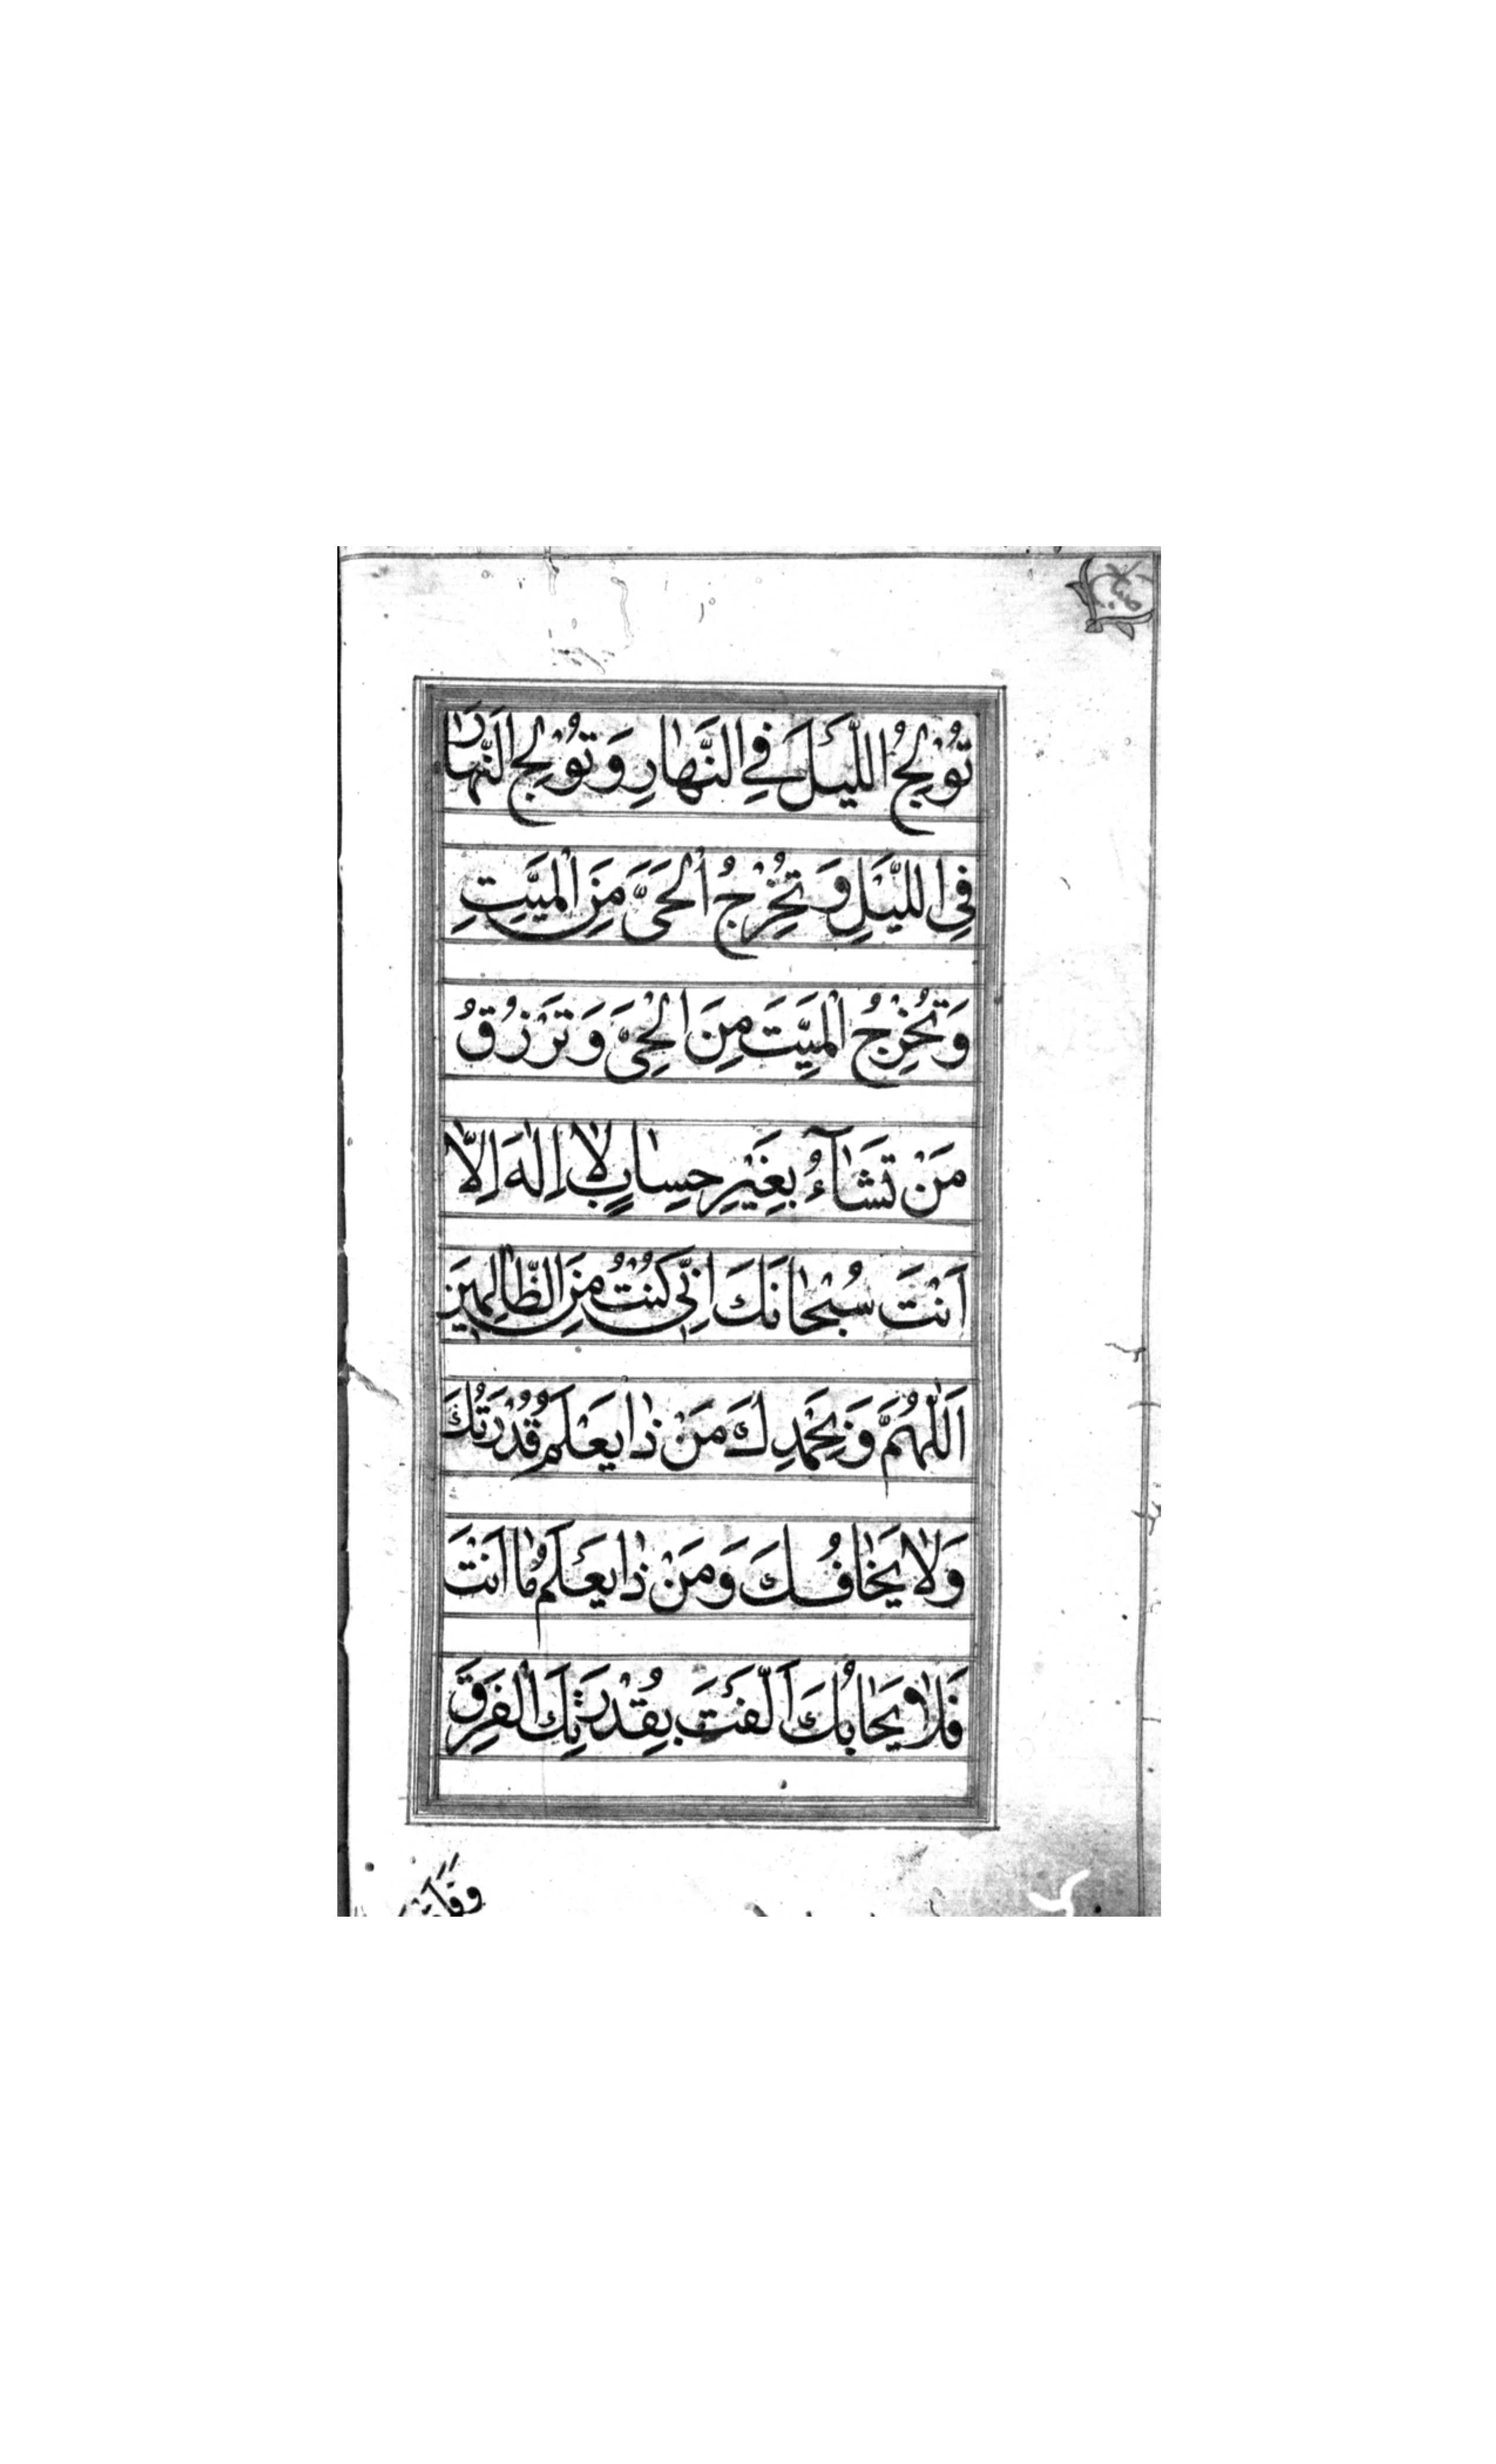 صباح
تُوْلِجُ اللَّيْلَ فِي النَّهارِ وَتُوْلِجُ النَّهارَ
فِي اللَّيْلِ وَتُخْرِجُ الْحَيَّ مِنَ الْمَيِّتِ
وَتُخْرِجُ الْمَيِّتَ مِنَ الْحَيِّ وَتَرْزُقُ
مَنْ تَشآءُ بِغَيْرِ حِسابٍ لا اِلٰهَ اِلّا
اَنْتَ سُبْحانَكَ اِنِّي كُنْتُ مِنَ الظّالِمِينَ
اَللّٰهُمَّ وَبِحَمْدِكَ مَنْ ذا يَعْلَمُ قُدْرَتَكَ
وَلا يَخافُكَ وَمَنْ ذا يَعْلَمُ ما اَنْتَ
فَلا يَهابُكَ اَلَّفْتَ بِقُدْرَتِكَ الْفِرَقَ